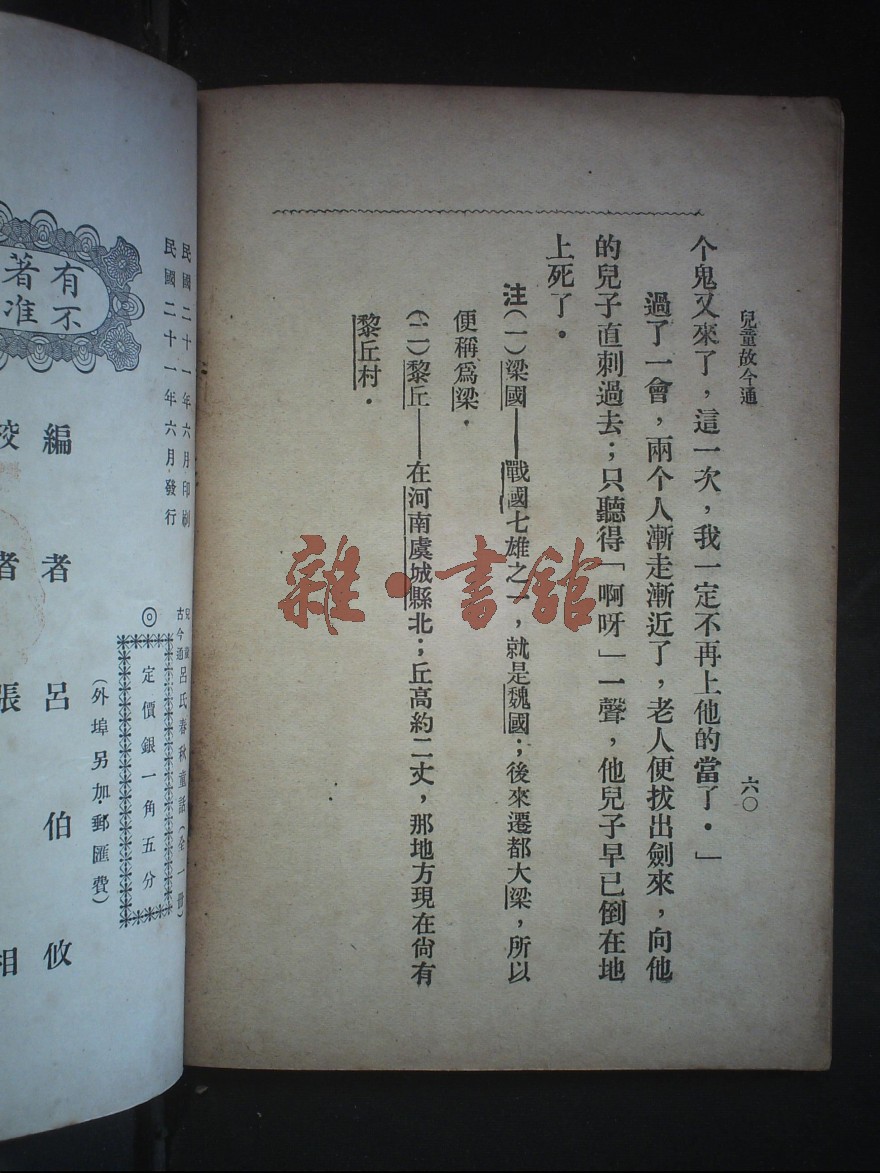 兒童故今通
六〇
个鬼又來了，這一次，我一定不再上他的當了．」
過了一會，兩个人漸走漸近了，老人便拔出劍來，向他
的兒子直刺過去；只聽得「啊呀」一聲，他兒子早已倒在地
上死了．
注(一)梁國——戰國七雄之一，就是魏國；後來遷都大梁，所以
便稱爲梁．
(二)黎丘——在河南虞城縣北；丘高約二丈，那地方現在尙有
黎丘村．
雜·書館
民國二十一年六月印刷
民國二十一年六月發行
兒童古今通呂氏春秋童話(全一册)
◎定價銀一角五分
(外埠另加郵匯費)
有不
著准
編者呂伯攸
校者張相